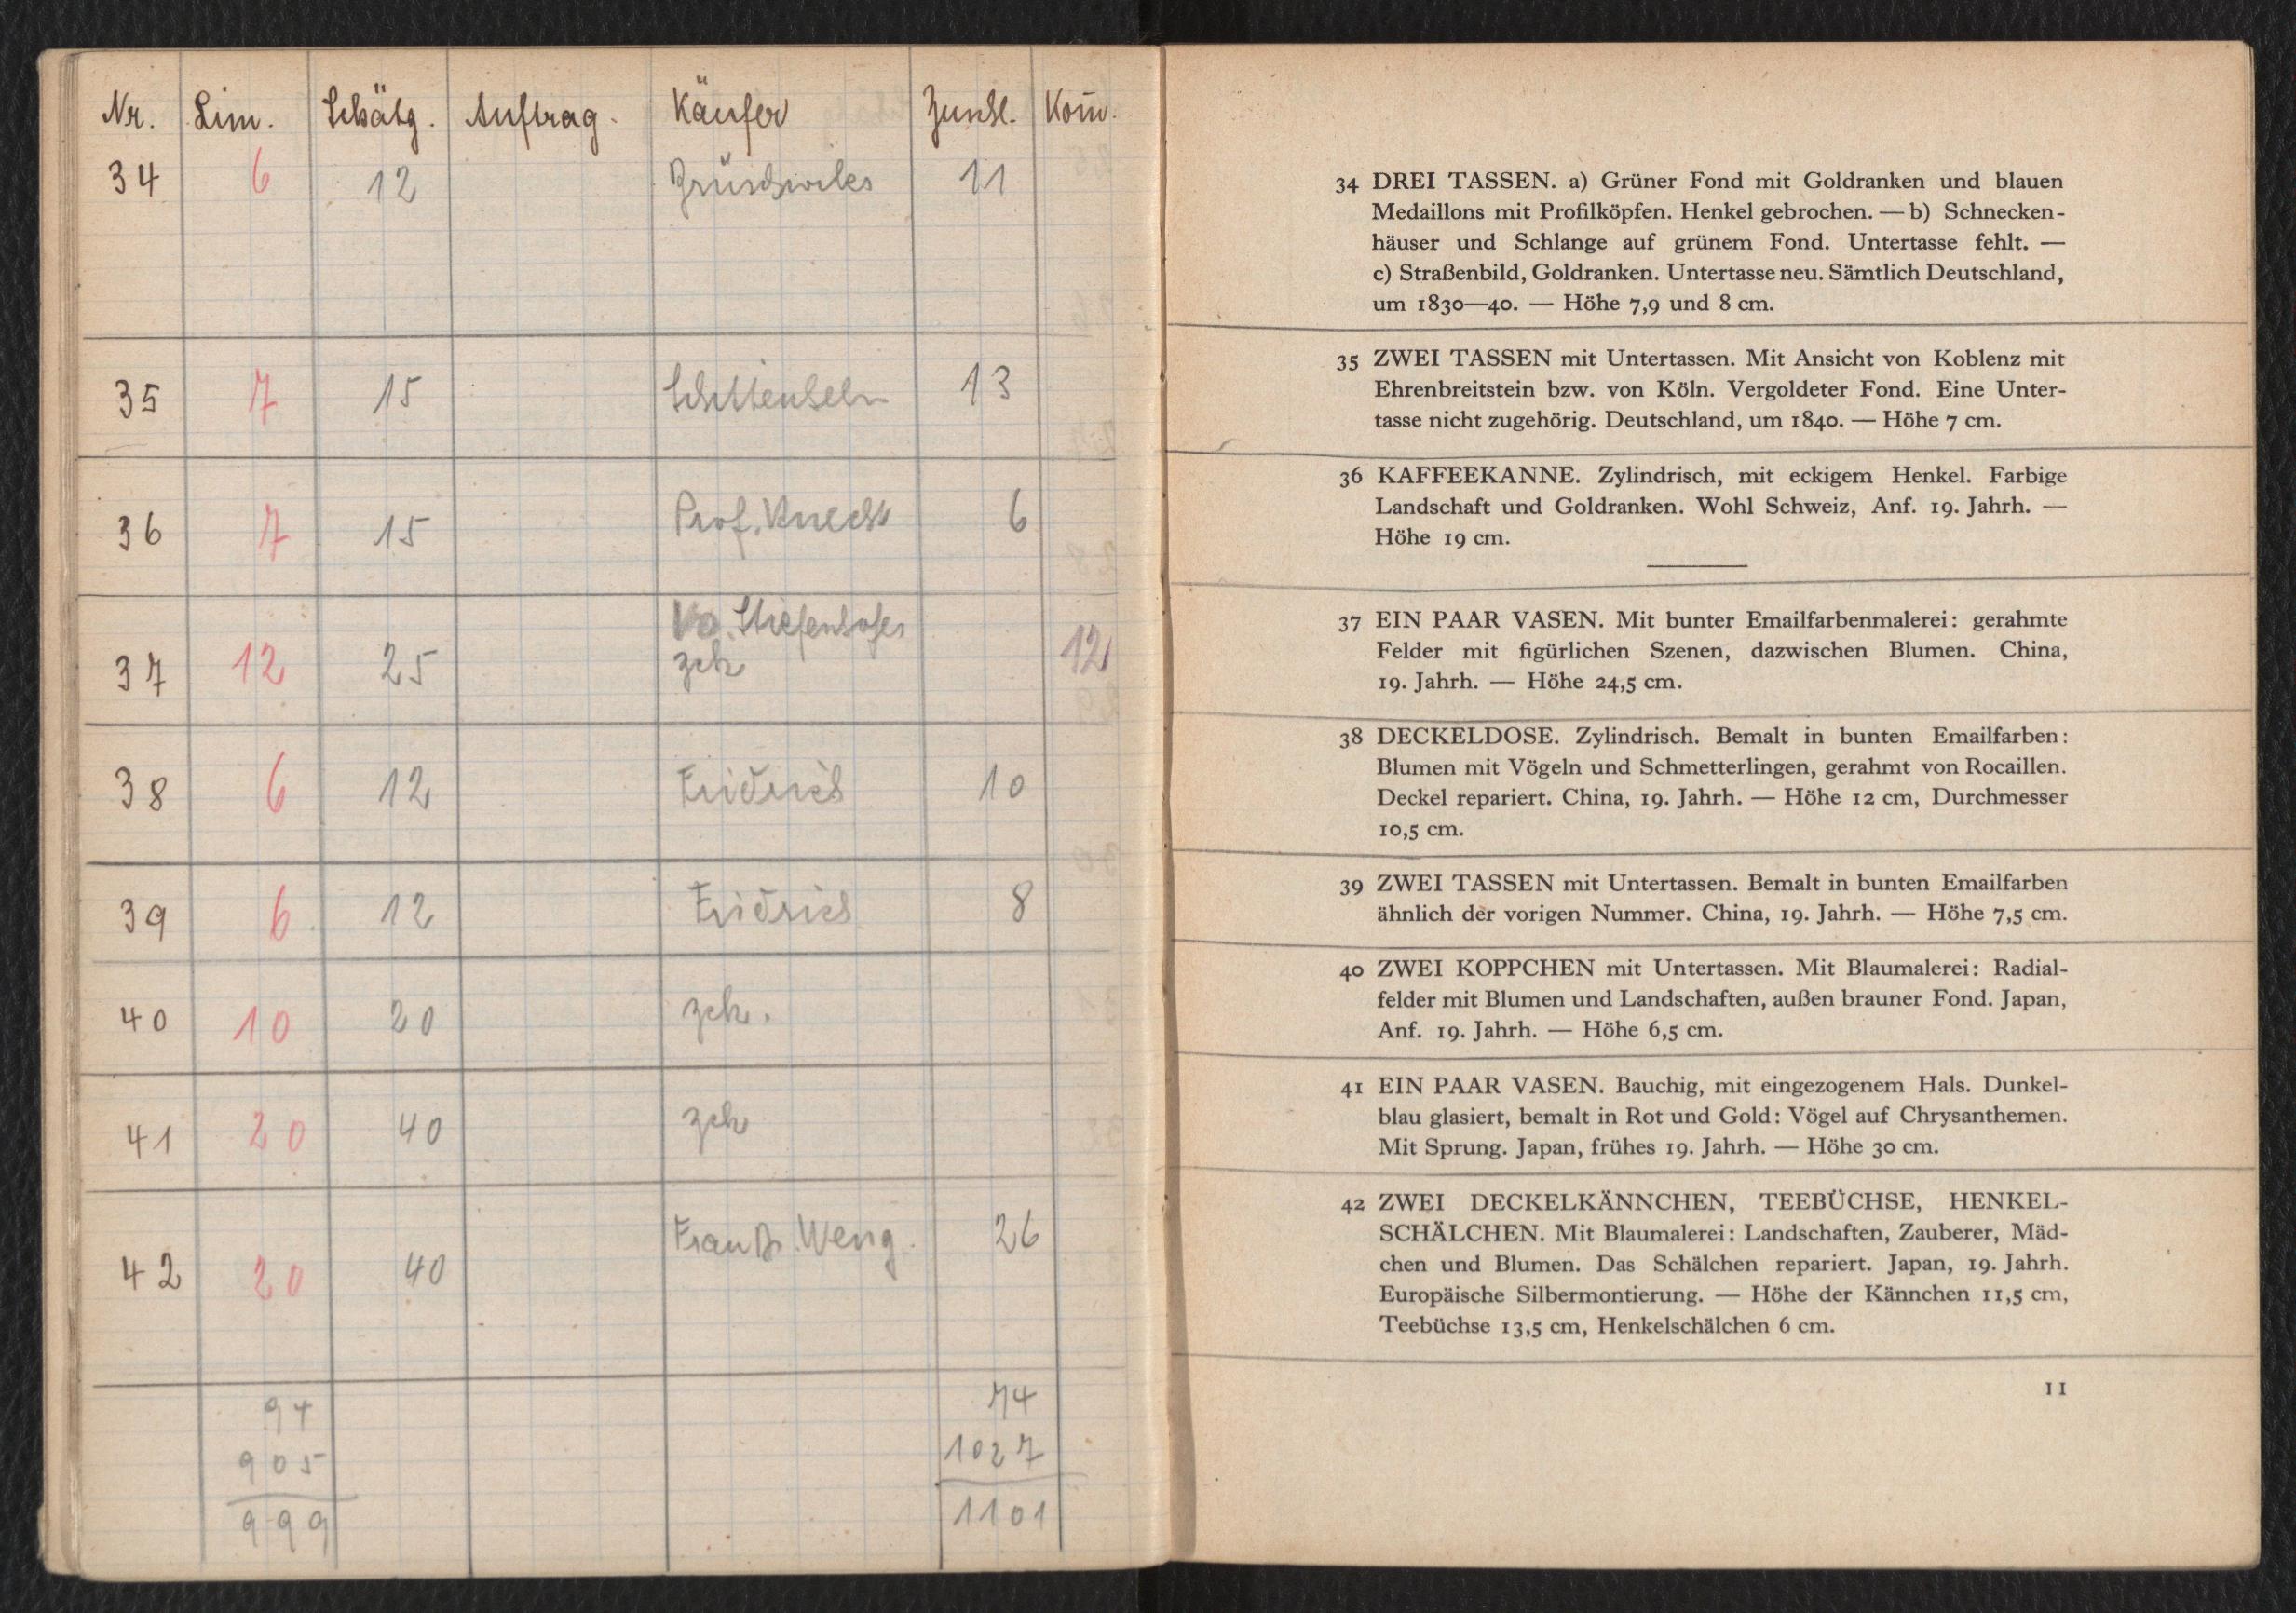 Nr. Lim. Schätzg. Auftrag. Käufer Zuschl. Kom̄.
34 6 12 11
35 7 15 13
36 7 15 Prof. Knecht 6
37 12 25 zch 12
38 6 12 Fridrich 10
39 6 12 Fridrich 8
40 10 20 zch.
41 20 40 zch
42 20 40 Frau Dr. Weng. 26
94 74
905 1027
999 1101
34 DREI TASSEN. a) Grüner Fond mit Goldranken und blauen
Medaillons mit Profilköpfen. Henkel gebrochen. — b) Schnecken-
häuser und Schlange auf grünem Fond. Untertasse fehlt. —
c) Straßenbild, Goldranken. Untertasse neu. Sämtlich Deutschland,
um 1830—40. — Höhe 7,9 und 8 cm.
35 ZWEI TASSEN mit Untertassen. Mit Ansicht von Koblenz mit
Ehrenbreitstein bzw. von Köln. Vergoldeter Fond. Eine Unter-
tasse nicht zugehörig. Deutschland, um 1840. — Höhe 7 cm.
36 KAFFEEKANNE. Zylindrisch, mit eckigem Henkel. Farbige
Landschaft und Goldranken. Wohl Schweiz, Anf. 19. Jahrh. —
Höhe 19 cm.
37 EIN PAAR VASEN. Mit bunter Emailfarbenmalerei: gerahmte
Felder mit figürlichen Szenen, dazwischen Blumen. China,
19. Jahrh. — Höhe 24,5 cm.
38 DECKELDOSE. Zylindrisch. Bemalt in bunten Emailfarben:
Blumen mit Vögeln und Schmetterlingen, gerahmt von Rocaillen.
Deckel repariert. China, 19. Jahrh. — Höhe 12 cm, Durchmesser
10,5 cm.
39 ZWEI TASSEN mit Untertassen. Bemalt in bunten Emailfarben
ähnlich der vorigen Nummer. China, 19. Jahrh. — Höhe 7,5 cm.
40 ZWEI KOPPCHEN mit Untertassen. Mit Blaumalerei: Radial-
felder mit Blumen und Landschaften, außen brauner Fond. Japan,
Anf. 19. Jahrh. — Höhe 6,5 cm.
41 EIN PAAR VASEN. Bauchig, mit eingezogenem Hals. Dunkel-
blau glasiert, bemalt in Rot und Gold: Vögel auf Chrysanthemen.
Mit Sprung. Japan, frühes 19. Jahrh. — Höhe 30 cm.
42 ZWEI DECKELKÄNNCHEN, TEEBÜCHSE, HENKEL-
SCHÄLCHEN. Mit Blaumalerei: Landschaften, Zauberer, Mäd-
chen und Blumen. Das Schälchen repariert. Japan, 19. Jahrh.
Europäische Silbermontierung. — Höhe der Kännchen 11,5 cm,
Teebüchse 13,5 cm, Henkelschälchen 6 cm.
11